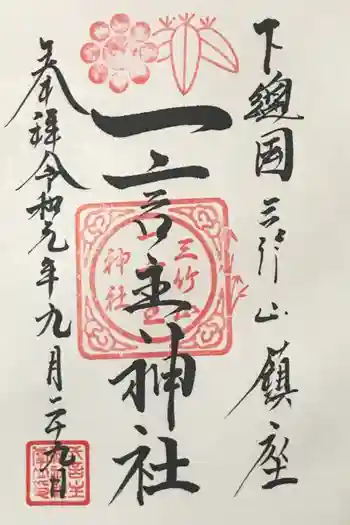 下總国三竹山鎮座
一言主神社
三竹山
神社
奉拝令和元年九月二十九日